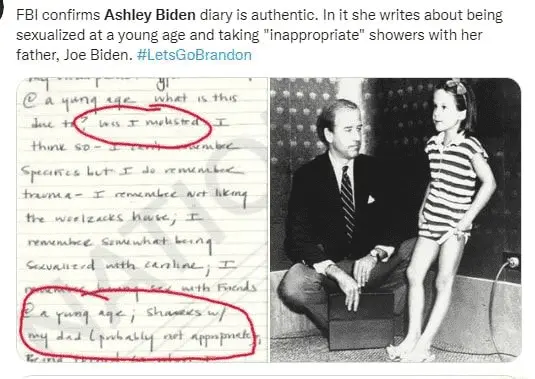 FBI confirms Ashley Biden diary is authentic. In it she writes about being
sexualized at a young age and taking "inappropriate" showers with her
father, Joe Biden. #LetsGoBrandon
@ a yung age. what is this
due to? was I molested. I
think so - I can't remember
Specifics but I do remember
trauma - I remember not liking
the woolzacks house; I
remember somewhat being
sexualized with caroline; I
remember having sex with Friends
@ a yung age; showers w/
my dad (probably not appropriate)
Being